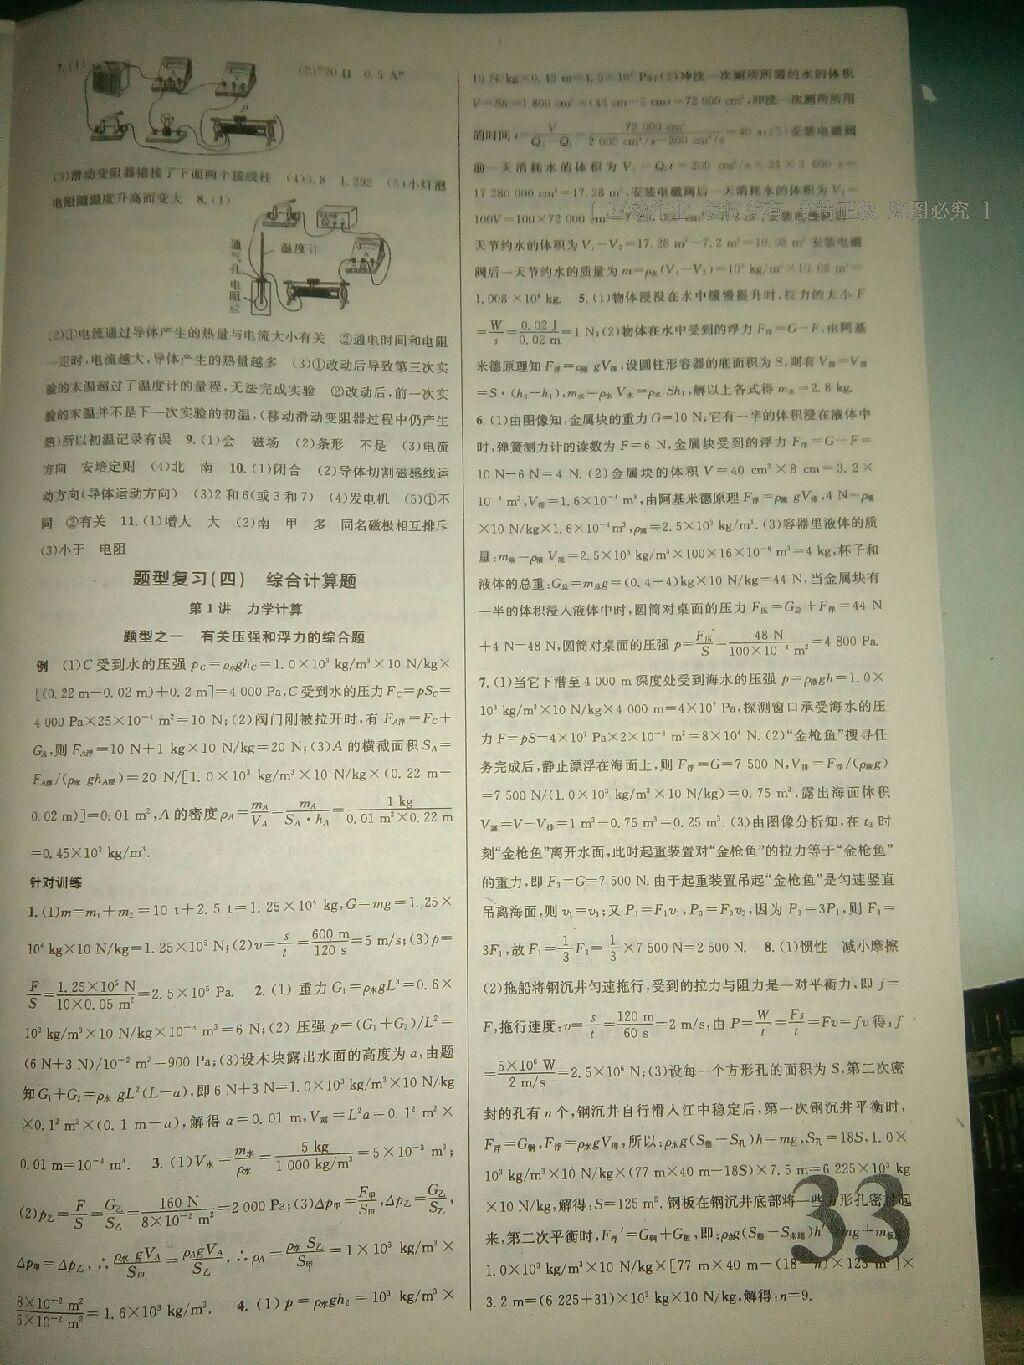 7.(1)
(2)"20 Ω 0.5 A"
(3)滑动变阻器错接了下面两个接线柱 (4)3.8 1.292 (5)小灯泡
电阻随温度升高而变大 8.(1)
通气孔
温度计
电阻丝
(2)①电流通过导体产生的热量与电流大小有关 ②通电时间和电阻
一定时,电流越大,导体产生的热量越多 (3)①改动后导致第三次实
验的末温超过了温度计的量程,无法完成实验 ②改动后,前一次实
验的末温并不是下一次实验的初温,(移动滑动变阻器过程中仍产生
热)所以初温记录有误 9.(1)会 磁场 (2)条形 不是 (3)电流
方向 安培定则 (4)北 南 10.(1)闭合 (2)导体切割磁感线运
动方向(导体运动方向) (3)2和6(或3和7) (4)发电机 (5)①不
同 ②有关 11.(1)增大 大 (2)南 甲 多 同名磁极相互排斥
(3)小于 电阻
题型复习(四) 综合计算题
第1讲 力学计算
题型之一 有关压强和浮力的综合题
例 (1)C受到水的压强 pC=ρ水ghC=1.0×10³ kg/m³×10 N/kg×
[(0.22 m-0.02 m)+0.2 m]=4 000 Pa,C受到水的压力FC=pSC=
4 000 Pa×25×10⁻⁴ m²=10 N;(2)阀门刚被拉开时,有FA浮=FC+
GA,则FA浮=10 N+1 kg×10 N/kg=20 N;(3)A的横截面积SA=
FA浮/(ρ水 ghA浸)=20 N/[1.0×10³ kg/m³×10 N/kg×(0.22 m-
0.02 m)]=0.01 m²,A的密度ρA=mA/VA=mA/(SA·hA)=1 kg/(0.01 m²×0.22 m)
=0.45×10³ kg/m³.
针对训练
1.(1)m=m₁+m₂=10 t+2.5 t=1.25×10⁴ kg,G=mg=1.25×
10⁴ kg×10 N/kg=1.25×10⁵ N;(2)v=s/t=600 m/120 s=5 m/s;(3)p=
F/S=1.25×10⁵ N/(10×0.05 m²)=2.5×10⁵ Pa. 2.(1)重力G₁=ρ木gL³=0.6×
10³ kg/m³×10 N/kg×10⁻³ m³=6 N;(2)压强p=(G₁+G₂)/L²=
(6 N+3 N)/10⁻² m²=900 Pa;(3)设木块露出水面的高度为a,由题
知G₁+G₂=ρ水 gL²(L-a),即6 N+3 N=1.0×10³ kg/m³×10 N/kg
×0.1² m²×(0.1 m-a),解得a=0.01 m,V露=L²a=0.1² m²×
0.01 m=10⁻⁴ m³. 3.(1)V水=m水/ρ水=5 kg/(1 000 kg/m³)=5×10⁻³ m³;
(2)p乙=F/S=G乙/S乙=160 N/(8×10⁻² m²)=2 000 Pa;(3)Δp甲=F甲/S甲,Δp乙=G乙/S乙,
Δp甲=Δp乙,∴ρ水gVA/S甲=ρAgVA/S乙,∴ρA=ρ水S乙/S甲=1×10³ kg/m³×
8×10⁻² m²/(5×10⁻² m²)=1.6×10³ kg/m³. 4.(1)p=ρ水gh₂=10³ kg/m³×
10 N/kg×0.45 m=4.5×10³ Pa;(2)冲洗一次厕所所需的水的体积
V=Sh=1 800 cm²×(45 cm-5 cm)=72 000 cm³,冲洗一次厕所所用
的时间t=V/(Q₂-Q₁)=72 000 cm³/(2 000 cm³/s-200 cm³/s)=40 s;(3)安装电磁阀
前一天消耗水的体积为V₁=Q₁t=200 cm³/s×24×3 600 s=
17 280 000 cm³=17.28 m³,安装电磁阀后一天消耗水的体积为V₂=
100V=100×72 000 cm³
版图必究 ]
天节约水的体积为V₁-V₂=17.28 m³-7.2 m³=10.08 m³ 安装电磁
阀后一天节约水的质量为m=ρ水(V₁-V₂)=10³ kg/m³×10.08 m³=
1.008×10⁴ kg. 5.(1)物体浸没在水中缓慢提升时,拉力的大小F
=W/s=0.02 J/0.02 m=1 N;(2)物体在水中受到的浮力F浮=G-F,由阿基
米德原理知F浮=ρ液 gV排,设圆柱形容器的底面积为S,则有V排=V物
=S·(h₂-h₁),m水=ρ水 V水=ρ水 Sh₁,解以上各式得m水=2.8 kg.
6.(1)由图像知,金属块的重力G=10 N;它有一半的体积浸在液体中
时,弹簧测力计的读数为F=6 N,金属块受到的浮力F浮=G-F=
10 N-6 N=4 N.(2)金属块的体积V=40 cm²×8 cm=3.2×
10⁻⁴ m³,V排=1.6×10⁻⁴ m³,由阿基米德原理F浮=ρ液 gV排,4 N=ρ液
×10 N/kg×1.6×10⁻⁴m³,ρ液=2.5×10³ kg/m³.(3)容器里液体的质
量:m液=ρ液 V液=2.5×10³ kg/m³×100×16×10⁻⁶ m³=4 kg,杯子和
液体的总重:G总=m总g=(0.4+4)kg×10 N/kg=44 N,当金属块有
一半的体积浸入液体中时,圆筒对桌面的压力F压=G总+F浮=44 N
+4 N=48 N,圆筒对桌面的压强p=F压/S=48 N/(100×10⁻⁴ m²)=4 800 Pa.
7.(1)当它下潜至4 000 m深度处受到海水的压强p=ρ海gh=1.0×
10³ kg/m³×10 N/kg×4 000 m=4×10⁷ Pa,探测窗口承受海水的压
力F=pS=4×10⁷ Pa×2×10⁻³ m²=8×10⁴ N.(2)"金枪鱼"搜寻任
务完成后,静止漂浮在海面上,则F浮=G=7 500 N,V排=F浮/(ρ海g)
=7 500 N/(1.0×10³ kg/m³×10 N/kg)=0.75 m³,露出海面体积
V露=V-V排=1 m³-0.75 m³=0.25 m³.(3)由图像分析知,在t₃时
刻"金枪鱼"离开水面,此时起重装置对"金枪鱼"的拉力等于"金枪鱼"
的重力,即F₃=G=7 500 N.由于起重装置吊起"金枪鱼"是匀速竖直
吊离海面,则v₁=v₃;又P₁=F₁v₁,P₃=F₃v₃,因为P₃=3P₁,则F₃=
3F₁,故F₁=1/3F₃=1/3×7 500 N=2 500 N. 8.(1)惯性 减小摩擦
(2)拖船将钢沉井匀速拖行,受到的拉力与阻力是一对平衡力,即f=
F,拖行速度:v=s/t=120 m/60 s=2 m/s;由P=W/t=Fs/t=Fv=fv得:f
=5×10⁶ W/(2 m/s)=2.5×10⁶ N;(3)设每一个方形孔的面积为S,第二次密
封的孔有n个,钢沉井自行滑入江中稳定后,第一次钢沉井平衡时,
F浮=G钢,F浮=ρ水gV排,所以:ρ水g(S整-S孔)h=mg,S孔=18S,1.0×
10³ kg/m³×10 N/kg×(77 m×40 m-18S)×7.5 m=6 225×10³ kg
×10 N/kg,解得:S=125 m².钢板在钢沉井底部将一些方形孔密封起
来,第二次平衡时,F浮′=G钢+G板,即:ρ水g(S整-S未堵)h′=mg+m板g,
1.0×10³ kg/m³×10 N/kg×[77 m×40 m-(18-n)×125 m²]×
3.2 m=(6 225+31)×10³ kg×10 N/kg,解得:n=9.
33